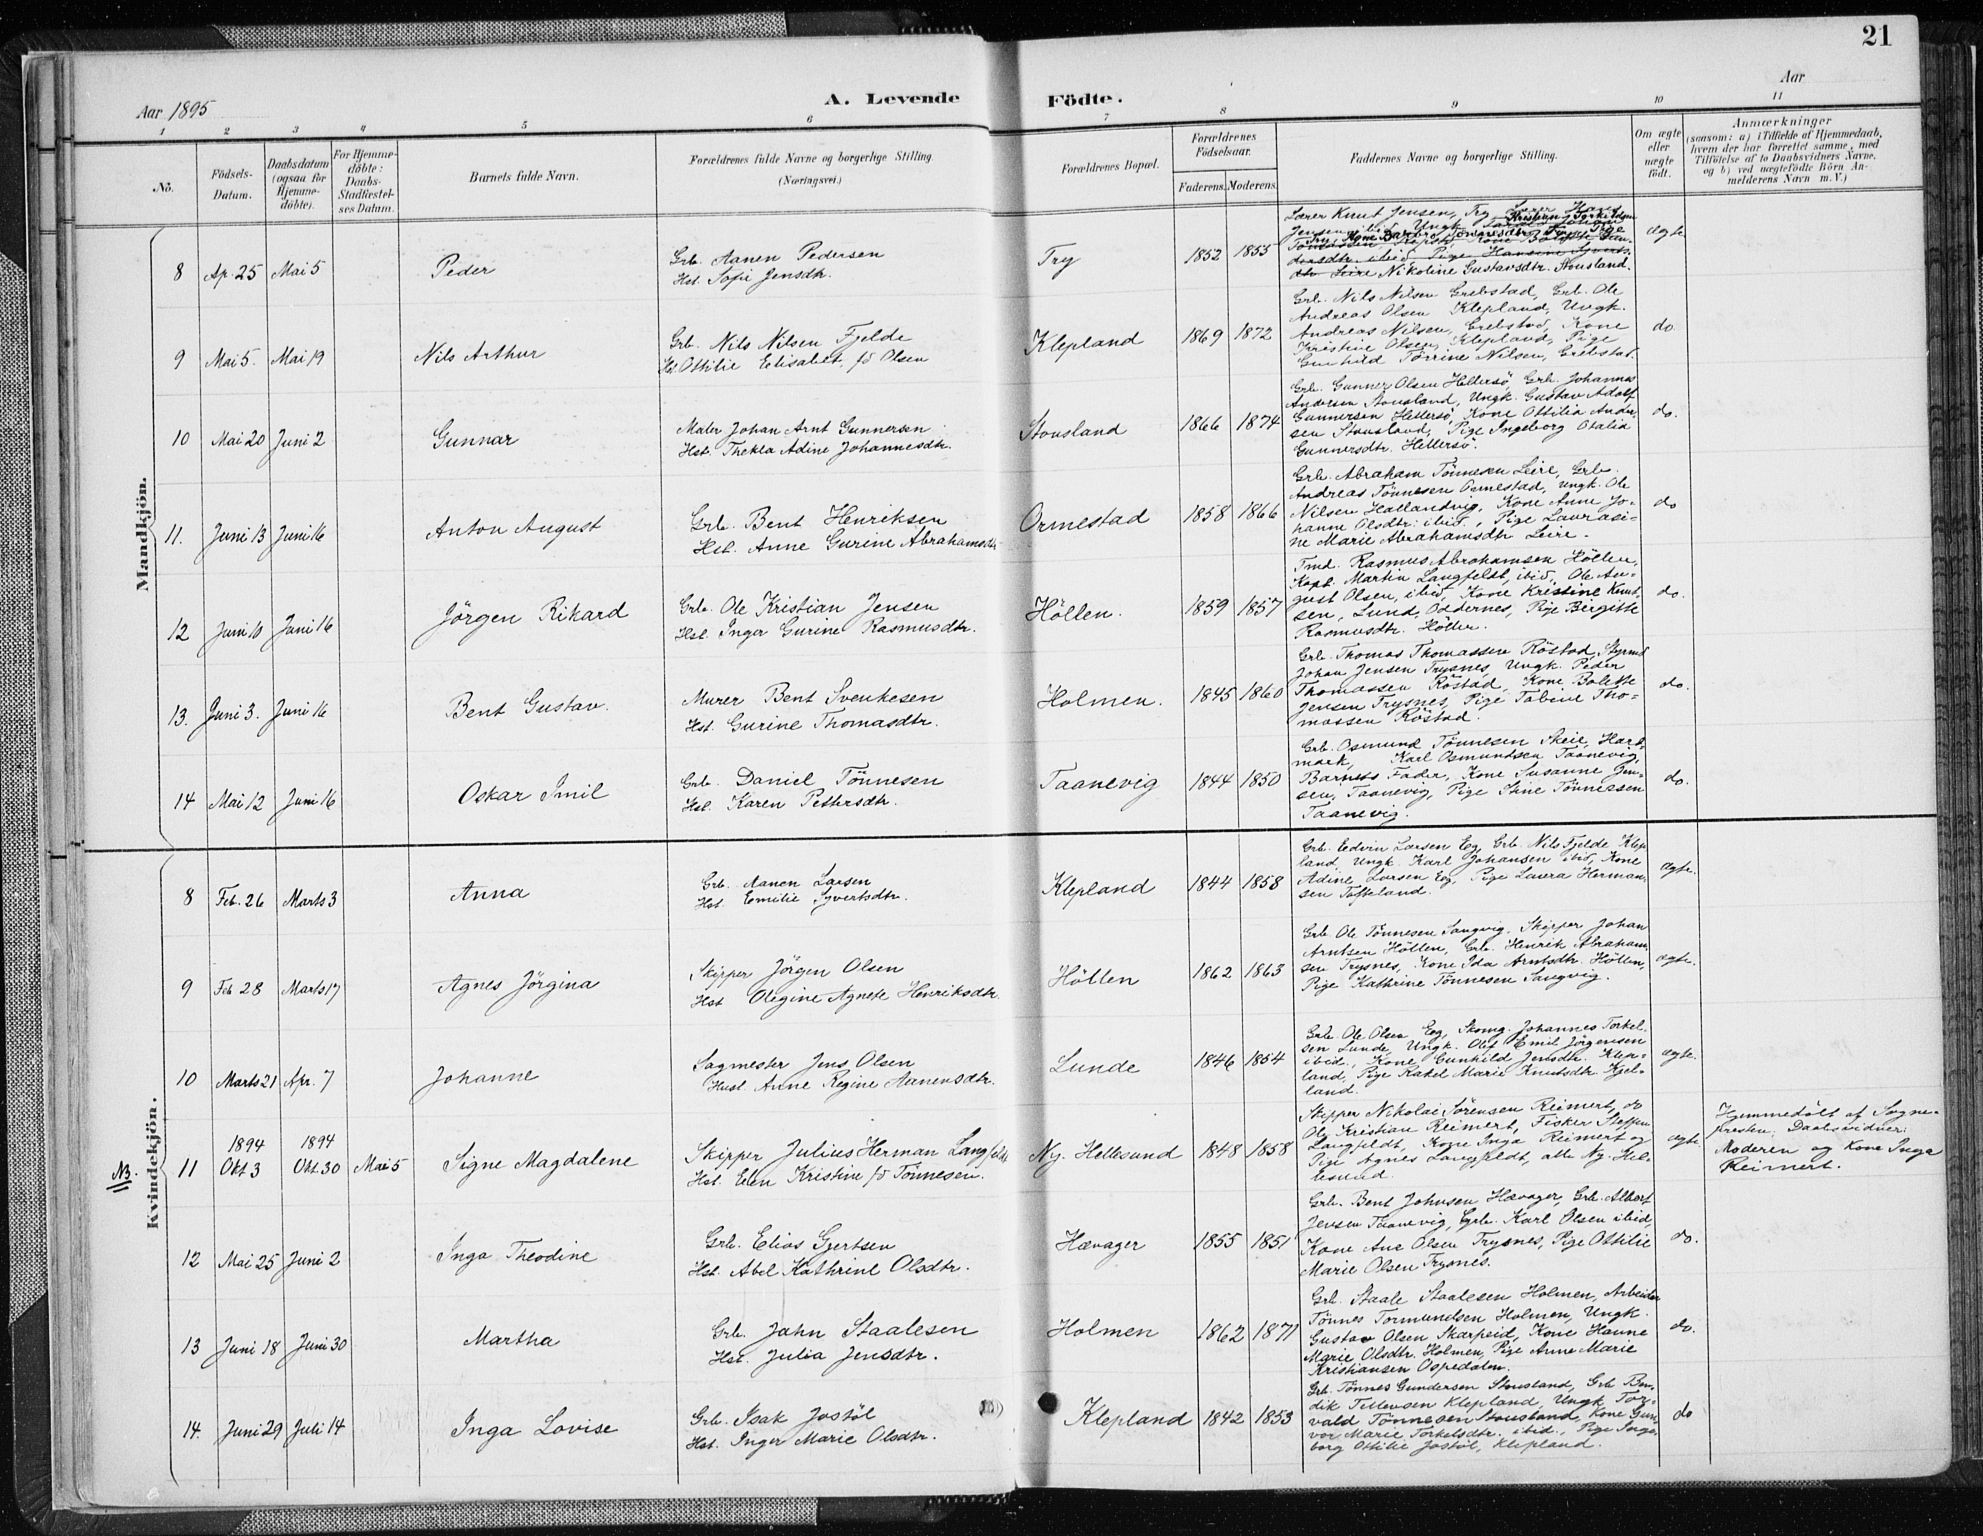 21
Aar 1895
A. Levende Födte.
Aar
1 2 3 4 5 6 7 8 9 10 11
No.
Födsels-Datum.
Daabsdatum (ogsaa for Hjemme-döbte).
For Hjemme-döbte: Daabs-Stadfæstel-ses Datum.
Barnets fulde Navn.
Forældrenes fulde Navne og borgerlige Stilling.
(Næringsvei.)
Forældrenes Bopæl.
Forældrenes Födselsaar.
Faderens. Moderens.
Faddernes Navne og borgerlige Stilling.
Om ægte eller uægte födt.
Anmærkninger
(saasom: a) i Tilfælde af Hjemmedaab,
hvem der har forrettet samme, med
Tilföielse af to Daabsvidners Navne,
og b) ved uægtefödte Börn An-
melderens Navn m. V.)
Mandkjön.
8 Ap. 25 Mai 5 Peder
Grb. Aanen Pedersen
Hst. Sofie Jensdtr.
Try 1852 1855
Lærer Knut Jensen, Try
Nikoline Gustavsdtr. Stousland.
ægte
9 Mai 5. Mai 19 Nils Arthur
Grb. Nils Nilsen Fjelde
Hst. Ottilie Elisabet, fd Olsen
Klepland 1869 1872
Grb. Nils Nilsen Grebstad, Grb. Ole
Andreas Olsen Klepland, Ungk.
Andreas Nilsen, Grebstad, Kone
Kristine Olsen, Klepland, Pige
Gunhild Törrine Nilsen, Grebstad.
do.
10 Mai 20 Juni 2 Gunnar
Maler Johan Arnt Gunnersen
Hst. Thekla Adine Johannesdtr.
Stousland 1866 1874
Grb. Gunner Olsen Hellersö, Grb. Johannes
Andersen Stousland, Ungk. Gustav Adolf
Gunnersen Hellersö, Kone Ottilia Ander-
sen Stousland, Pige Ingeborg Otalia
Gunnersdtr. Hellersö.
do.
11. Juni 13 Juni 16 Anton August
Grb. Bent Henriksen
Hst. Anne Gurine Abrahamsdtr
Ormestad 1858 1866
Grb. Abraham Tönnesen Leire, Grb.
Andreas Tönnesen Ormestad, Ungk. Ole
Nilsen Hallandvig, Kone Anne Jo-
hanne Olsdtr. ibid., Pige Laurasi-
ne Marie Abrahamsdtr Leire.
do
12 Juni 10 Juni 16 Jörgen Rikard
Grb. Ole Kristian Jensen
Hst. Inger Gurine Rasmusdtr.
Höllen. 1859 1857
Tmd. Rasmus Abrahamsen Höllen,
Kapt. Martin Langfeldt, ibid., Ole Au-
gust Olsen, ibid, Kone Kristine Knut-
sen, Lund, Oddernes, Pige Birgitte
Rasmusdtr. Höllen.
do.
13. Juni 3. Juni 16 Bent Gustav.
Murer Bent Svenkesen
Hst. Gurine Thomasdtr.
Holmen. 1845 1860
Grb. Thomas Thomassen Röstad, Styrmd
Johan Jensen Trysnes, Ungk. Peder
Thomassen Röstad, Kone Bolette
Jensen Trysnes, Pige Tobine Tho-
massen Röstad.
do.
14 Mai 12 Juni 16 Oskar Emil
Grb. Daniel Tönnesen
Hst. Karen Pettersdtr.
Taanevig 1844 1850
Grb. Osmund Tönnesen Skeie, Hart-
mark, Karl Osmundsen Taanevig,
Barnets Fader, Kone Susanne Jen-
sen, Taanevig, Pige Stine Tönnessen
Taanevig.
do.
Kvindekjön.
8 Feb. 26 Marts 3 Anna
Grb. Aanen Larsen
Hst. Emilie Syvertsdtr.
Klepland 1844 1858
Grb. Edvin Larsen Eeg, Grb. Nils Fjelde Klep-
land, Ungk. Karl Johansen ibid, Kone
Adine Larsen Eeg, Pige Laura Herman-
sen Tofteland.
ægte.
9 Feb 28 Marts 17 Agnes Jörgina
Skipper Jörgen Olsen
Hst Olegine Agnete Henriksdtr.
Höllen 1862 1863
Grb. Ole Tönnesen Langvig, Skipper Johan
Arntsen Höllen, Grb. Henrik Abraham-
sen Trysnes, Kone Ida Arntsdtr. Höllen,
Pige Kathrine Tönnesen Langvig.
ægte.
10 Marts 21 Apr. 7 Johanne
Sagmester Jens Olsen
Hust. Anne Regine Aanensdtr.
Lunde 1846 1854
Grb. Ole Olsen Eeg, Skomg. Johannes Torkel-
sen Lunde, Ungk. Olef Emil Jörgensen
ibid., Kone Gunhild Jensdtr. Klep-
land, Pige Rakel Marie Knutsdtr. Kjel-
land.
ægte.
NB
11 1894 Okt 3 1894 Okt. 30 Mai 5 Signe Magdalene
Skipper Julius Herman Langfeldt
Hst. Elen Kristine fd Tönnesen.
Ny. Hellesund 1848 1858
Skipper Nikolai Sörensen Reimert, do
Ole Kristian Reimert, Fisker Steffen
Langfeldt, Kone Inga Reimert og
Pige Agnes Langfeldt, alle Ny. Hel-
lesund.
ægte
Hjemmedöbt af Sogne-
presten. Daabsvidner:
Moderen og Kone Inga
Reimert.
12 Mai 25 Juni 2 Inga Theodine
Grb. Elias Gjertsen
Hst. Abel Kathrine Olsdtr.
Hævager 1855 1851
Grb. Bent Johnsen Hævager, Grb. Albert
Jensen Taanevig, Grb. Karl Olsen ibid,
Kone Ane Olsen Trysnes, Pige Ottilie
Marie Olsen Trysnes.
do.
13 Juni 18 Juni 30 Martha
Grb. John Staalesen
Hst. Julia Jensdtr.
Holmen 1862 1871
Grb. Staale Staalesen Holmen, Arbeider
Tönnes Tormundsen Holmen, Ungk.
Gustav Olsen Skarpeid, Kone Hanne
Marie Olsdtr. Holmen, Pige Anne Marie
Kristiansen Ospedalen.
do.
14. Juni 29 Juli 14 Inga Lovise
Grb. Isak Jostöl
Hst. Inger Marie Olsdtr.
Klepland 1842 1853
Grb. Tönnes Gundersen Stousland, Grb Ben-
dik Tellevsen Klepland, Ungk Tor-
vald Tönnesen Stousland, Kone Gun-
vor Marie Torkelsdtr. ibid., Pige Inge-
borg Ottilie Jostöl, Klepland.
do